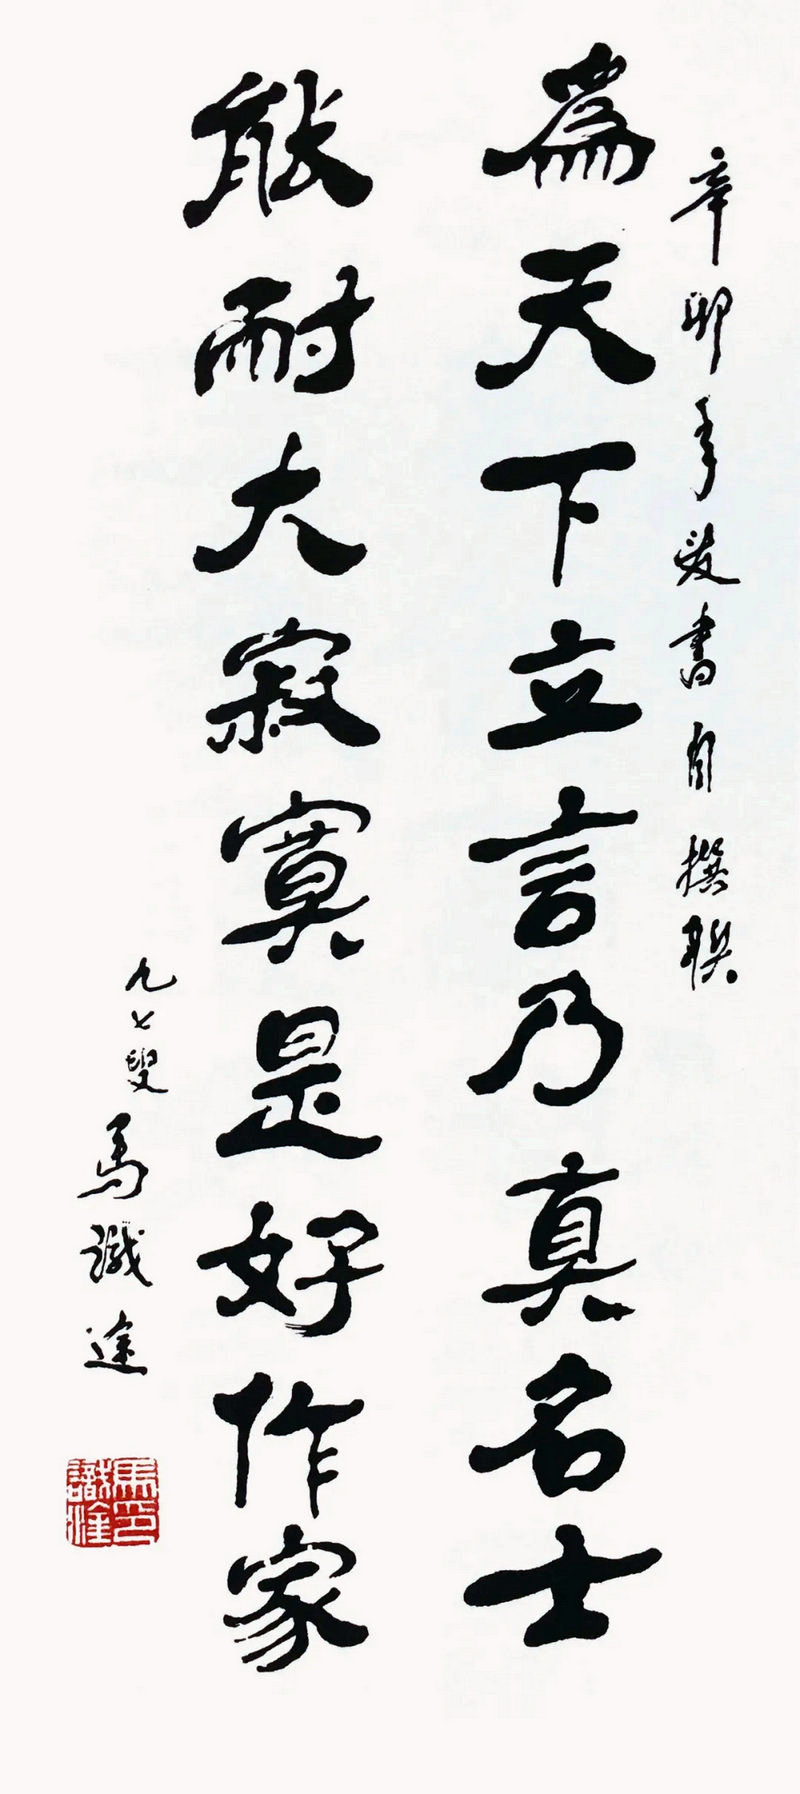 辛卯年書自撰联
為天下立言乃真名士
能耐大寂寞是好作家
九七叟
馬識途
馬印
識途